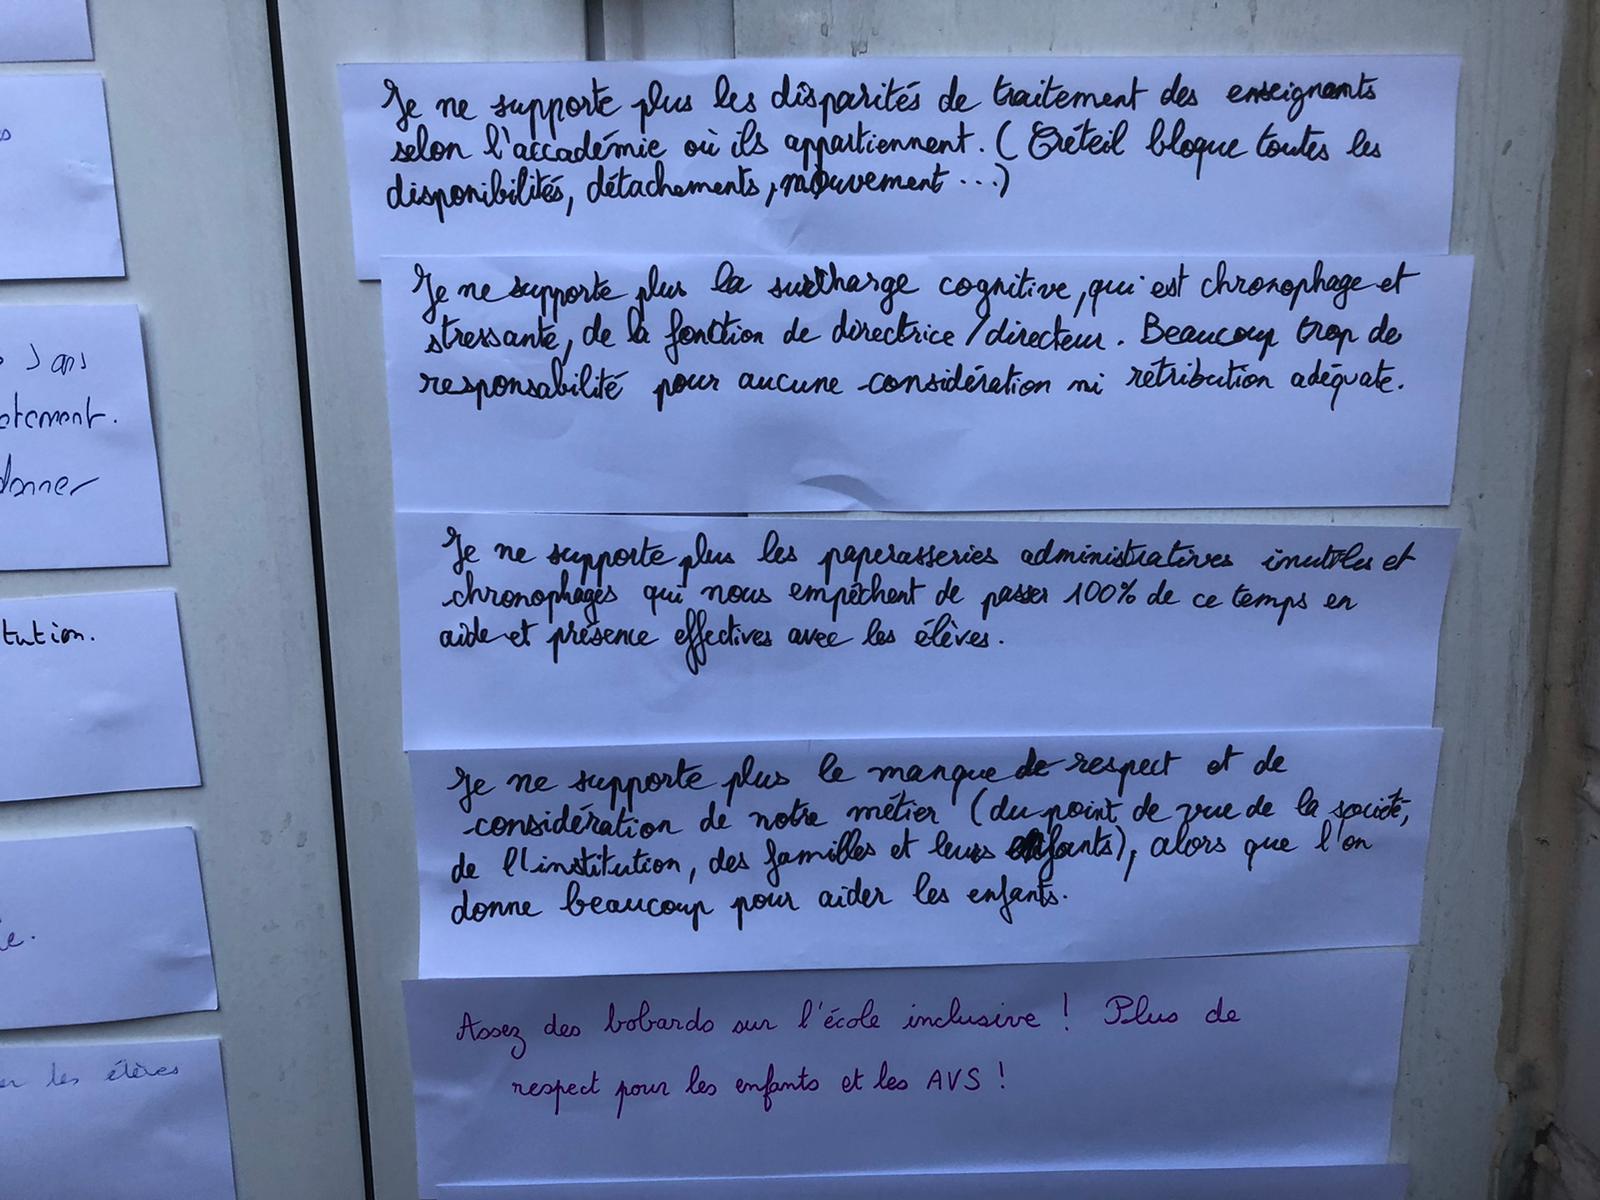 s
3 ans
etement.
donner
tution.
e.
er les élèves
Je ne supporte plus les disparités de traitement des enseignants
selon l'accadémie où ils appartiennent. (Créteil bloque toutes les
disponibilités, détachements, mouvement ...)
Je ne supporte plus la surcharge cognitive, qui est chronophage et
stressante, de la fonction de directrice / directeur. Beaucoup trop de
responsabilité pour aucune considération ni rétribution adéquate.
Je ne supporte plus les paperasseries administratives inutiles et
chronophages qui nous empêchent de passer 100% de ce temps en
aide et présence effectives avec les élèves.
Je ne supporte plus le manque de respect et de
considération de notre métier (du point de vue de la société,
de l'institution, des familles et leurs enfants), alors que l'on
donne beaucoup pour aider les enfants.
Assez des bobards sur l'école inclusive ! Plus de
respect pour les enfants et les AVS !